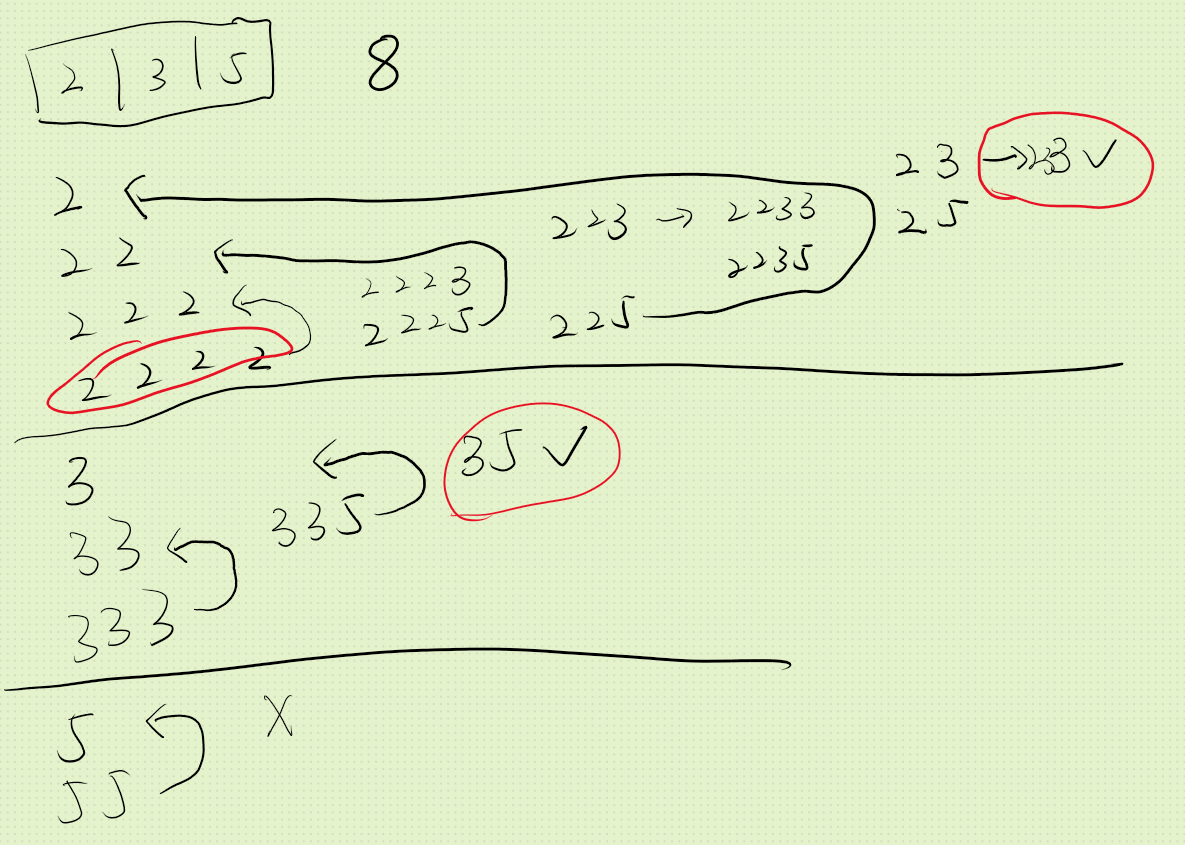 2 3 5
8
2
2 2
2 2 2
2 2 2 2
2 2 2 3
2 2 2 5
2 2 3 → 2 2 3 3
2 2 3 5
2 2 5
2 3 → 2 3 3 ✓
2 5
3
3 3
3 3 3
3 3 5
3 5 ✓
5
5 5
X